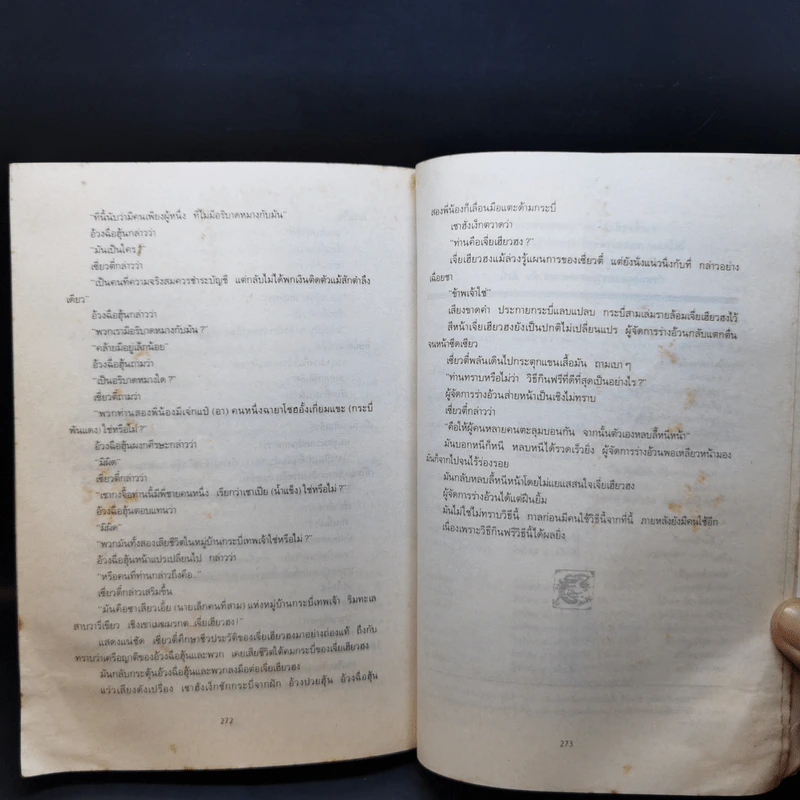 "ที่นี้นับว่ามีคนเพียงผู้หนึ่ง ที่ไม่มีอริบาดหมางกับมัน"
อ้วงฉือฮุ้นกล่าวว่า
"มันเป็นใคร?"
เซี่ยวตี้กล่าวว่า
"เป็นคนที่ความจริงสมควรชำระบัญชี แต่กลับไม่ได้พกเงินติดตัวแม้สักตำลึง
เดียว"
อ้วงฉือฮุ้นกล่าวว่า
"พวกเรามีอริบาดหมางกับมัน?"
"คล้ายมีอยู่เล็กน้อย"
อ้วงฉือฮุ้นถามว่า
"เป็นอริบาดหมางใด?"
เซี่ยวตี้ถามว่า
"พวกท่านสองพี่น้องมีเจ่กแป๋ (อา) คนหนึ่งฉายาโซฮอั้งเกี่ยมแขะ (กระบี่
พันแดง) ใช่หรือไม่?"
อ้วงฉือฮุ้นผงกศีรษะกล่าวว่า
"มิผิด"
เซี่ยวตี้กล่าวว่า
"เชากงจื้อท่านนี้มีพี่ชายคนหนึ่ง เรียกว่าเชาเปีย (น้ำแข็ง) ใช่หรือไม่?"
อ้วงฉือฮุ้นตอบแทนว่า
"มิผิด"
"พวกมันทั้งสองเสียชีวิตในหมู่บ้านกระบี่เทพเจ้าใช่หรือไม่?"
อ้วงฉือฮุ้นหน้าแปรเปลี่ยนไป กล่าวว่า
"หรือคนที่ท่านกล่าวถึงคือ..."
เซี่ยวตี้กล่าวเสริมขึ้น
"มันคือซาเสียวเอี้ย (นายเล็กคนที่สาม) แห่งหมู่บ้านกระบี่เทพเจ้า ริมทะเล
สาบวารีเขียว เชิงเขาเมฆมรกต...เจี่ยเฮียวฮง!"
แสดงแน่ชัด เซี่ยวตี้ศึกษาชีวประวัติของเจี่ยเฮียวฮงมาอย่างถ่องแท้ ถึงกับ
ทราบว่าเครือญาติของอ้วงฉือฮุ้นและพวก เคยเสียชีวิตใต้คมกระบี่ของเจี่ยเฮียวฮง
มันกลับกระตุ้นอ้วงฉือฮุ้นและพวกลงมือต่อเจี่ยเฮียวฮง
แว่วเสียงดังเปรื่อง เชาฮังเง็กชักกระบี่จากฝัก อ้วงปวยฮุ้น อ้วงฉือฮุ้น
272
สองพี่น้องก็เลื่อนมือแตะด้ามกระบี่
เชาฮังเง็กตวาดว่า
"ท่านคือเจี่ยเฮียวฮง?"
เจี่ยเฮียวฮงแม้ล่วงรู้แผนการของเซี่ยวตี้ แต่ยังนั่งแน่วนิ่งกับที่ กล่าวอย่าง
เฉื่อยชา
"ข้าพเจ้าใช่"
เสียงขาดคำ ประกายกระบี่แลบแปลบ กระบี่สามเล่มรายล้อมเจี่ยเฮียวฮงไว้
สีหน้าเจี่ยเฮียวฮงยังเป็นปกติไม่เปลี่ยนแปร ผู้จัดการร่างอ้วนกลับแตกตื่น
จนหน้าซีดเซียว
เซี่ยวตี้พลันเดินไปกระตุกแขนเสื้อมัน ถามเบาๆ
"ท่านทราบหรือไม่ว่า วิธีกินฟรีที่ดีที่สุดเป็นอย่างไร?"
ผู้จัดการร่างอ้วนส่ายหน้าเป็นเชิงไม่ทราบ
เซี่ยวตี้กล่าวว่า
"คือให้ผู้คนหลายคนตะลุมบอนกัน จากนั้นตัวเองหลบลี้หนีหน้า"
มันบอกหนีก็หนี หลบหนีได้รวดเร็วยิ่ง ผู้จัดการร่างอ้วนพอเหลียวหน้ามอง
มันก็จากไปจนไร้ร่องรอย
มันกลับหลบลี้หนีหน้าโดยไม่แยแสสนใจเจี่ยเฮียวฮง
ผู้จัดการร่างอ้วนได้แต่ฝืนยิ้ม
มันไม่ใช่ไม่ทราบวิธีนี้ กาลก่อนมีคนใช้วิธีนี้จากที่นี้ ภายหลังยังมีคนใช้อีก
เนื่องเพราะวิธีกินฟรีวิธีนี้ได้ผลยิ่ง
273